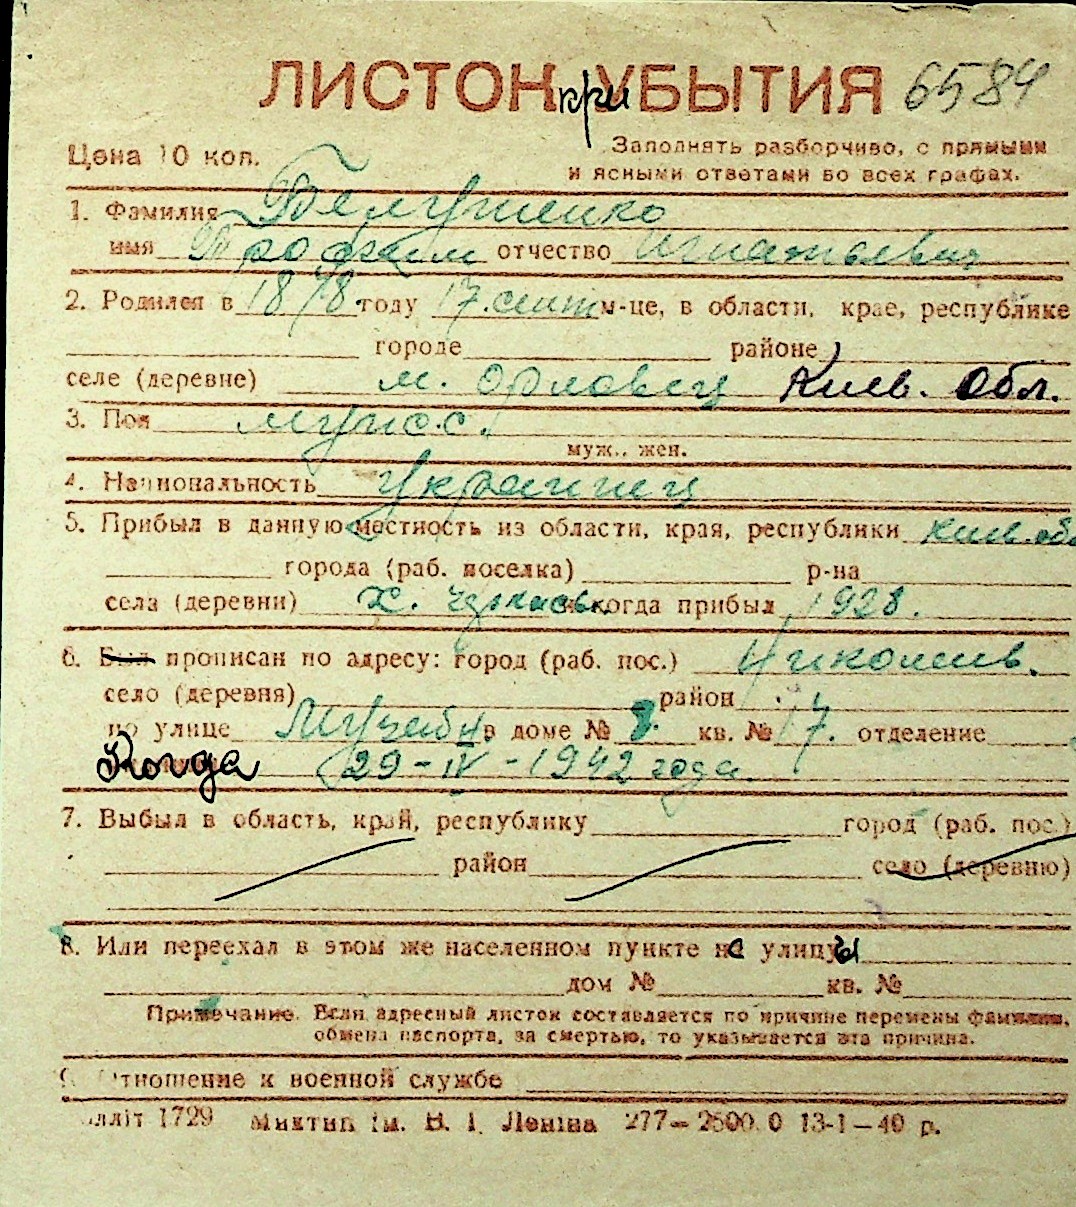 ЛИСТОК при УБЫТИЯ 6584
Цена 10 коп.
Заполнять разборчиво, с прямыми
и ясными ответами во всех графах.
1. Фамилия Белушенко
имя Трофим отчество Игнатьевич
2. Родился в 1878 году 17. сент м-це, в области, крае, республике
городе районе
селе (деревне) м. Орловец Киев. обл.
3. Пол мужс.
муж., жен.
4. Национальность Украинец
5. Прибыл в данную местность из области, края, республики Киев. обл
города (раб. поселка) р-на
села (деревни) Х. когда прибыл 1928.
6. Был прописан по адресу: город (раб. пос.) Николаев.
село (деревня) район
по улице в доме № 8. кв. № 17. отделение
Когда 29-IV-1942 года.
7. Выбыл в область, край, республику город (раб. пос.)
район село (деревню)
8. Или переехал в этом же населенном пункте нс улицы
дом № кв. №
Примечание. Если адресный листок составляется по причине перемены фамилии,
обмена паспорта, за смертью, то указывается эта причина.
9. Отношение к военной службе
лліт 1729 Миктип ім. В. І. Леніна 277—2500.0 13-1—40 р.